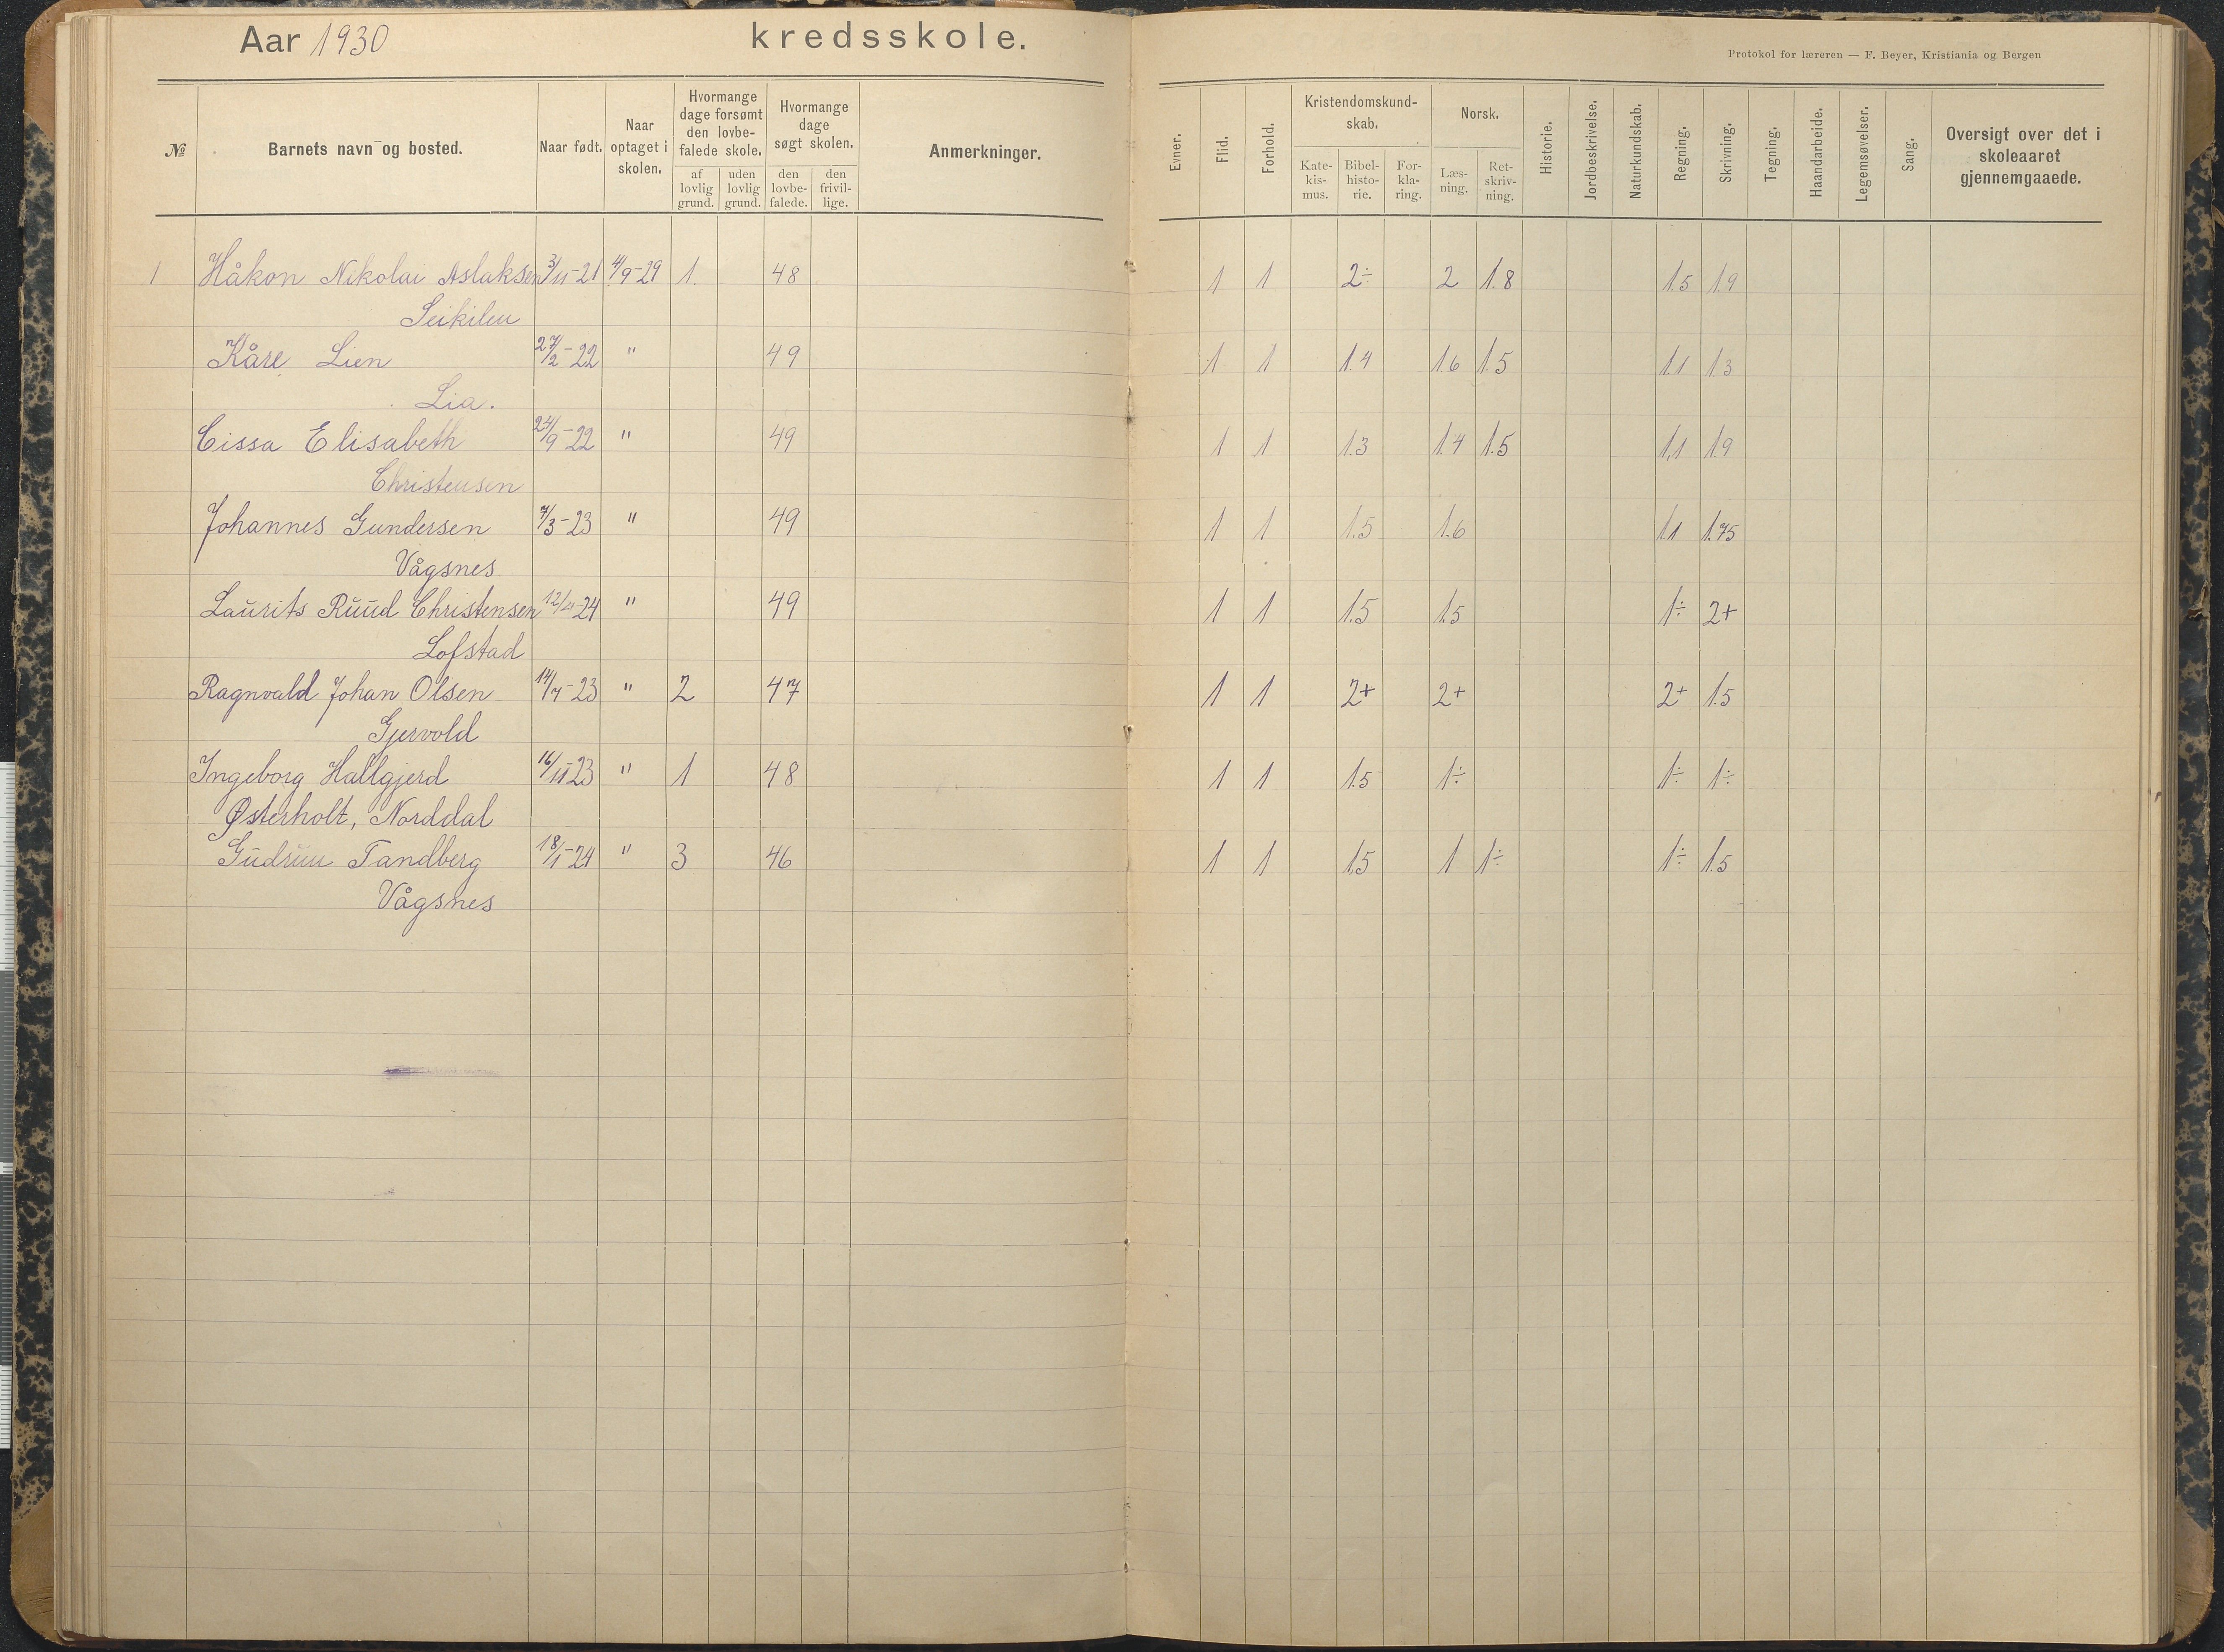 Aar 1930 kredsskole.
Protokol for læreren — F. Beyer, Kristiania og Bergen
№ Barnets navn og bosted. Naar født. Naar optaget i skolen. Hvormange dage forsømt den lovbefalede skole. af lovlig grund. uden lovlig grund. Hvormange dage søgt skolen. den lovbefalede. den frivillige. Anmerkninger. Evner. Flid. Forhold. Kristendomskundskab. Katekismus. Bibelhistorie. Forklaring. Norsk. Læsning. Retskrivning. Historie. Jordbeskrivelse. Naturkundskab. Regning. Skrivning. Tegning. Haandarbeide. Legemsøvelser. Sang. Oversigt over det i skoleaaret gjennemgaaede.
1 Håkon Nikolai Aslaksen 3/11-21 4/9-29 1 48 1 1 2÷ 2 1.8 1.5 1.9
Seikilen
Kåre Lien 27/2-22 " 49 1 1 1.4 1.6 1.5 1.1 1.3
Lia.
Cissa Elisabeth 24/9-22 " 49 1 1 1.3 1.4 1.5 1,1 1.9
Christensen
Johannes Gundersen 7/3-23 " 49 1 1 1.5 1.6 1.1 1.75
Vågsnes
Laurits Ruud Christensen 12/4-24 " 49 1 1 1.5 1.5 1÷ 2+
Lofstad
Ragnvald Johan Olsen 14/7-23 " 2 47 1 1 2+ 2+ 2+ 1.5
Gjervold
Ingeborg Hallgjerd 16/11-23 " 1 48 1 1 1.5 1÷ 1÷ 1÷
Østerholt, Norddal
Gudrun Tandberg 18/1-24 " 3 46 1 1 1.5 1 1÷ 1÷ 1.5
Vågsnes